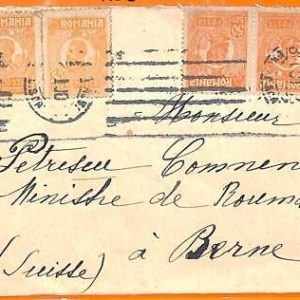 ROMANIA ROMANIA
50 ROMANIA
Monsieur
Petrescu Comnen
Ministre de Rouma
à Berne
(Suisse)